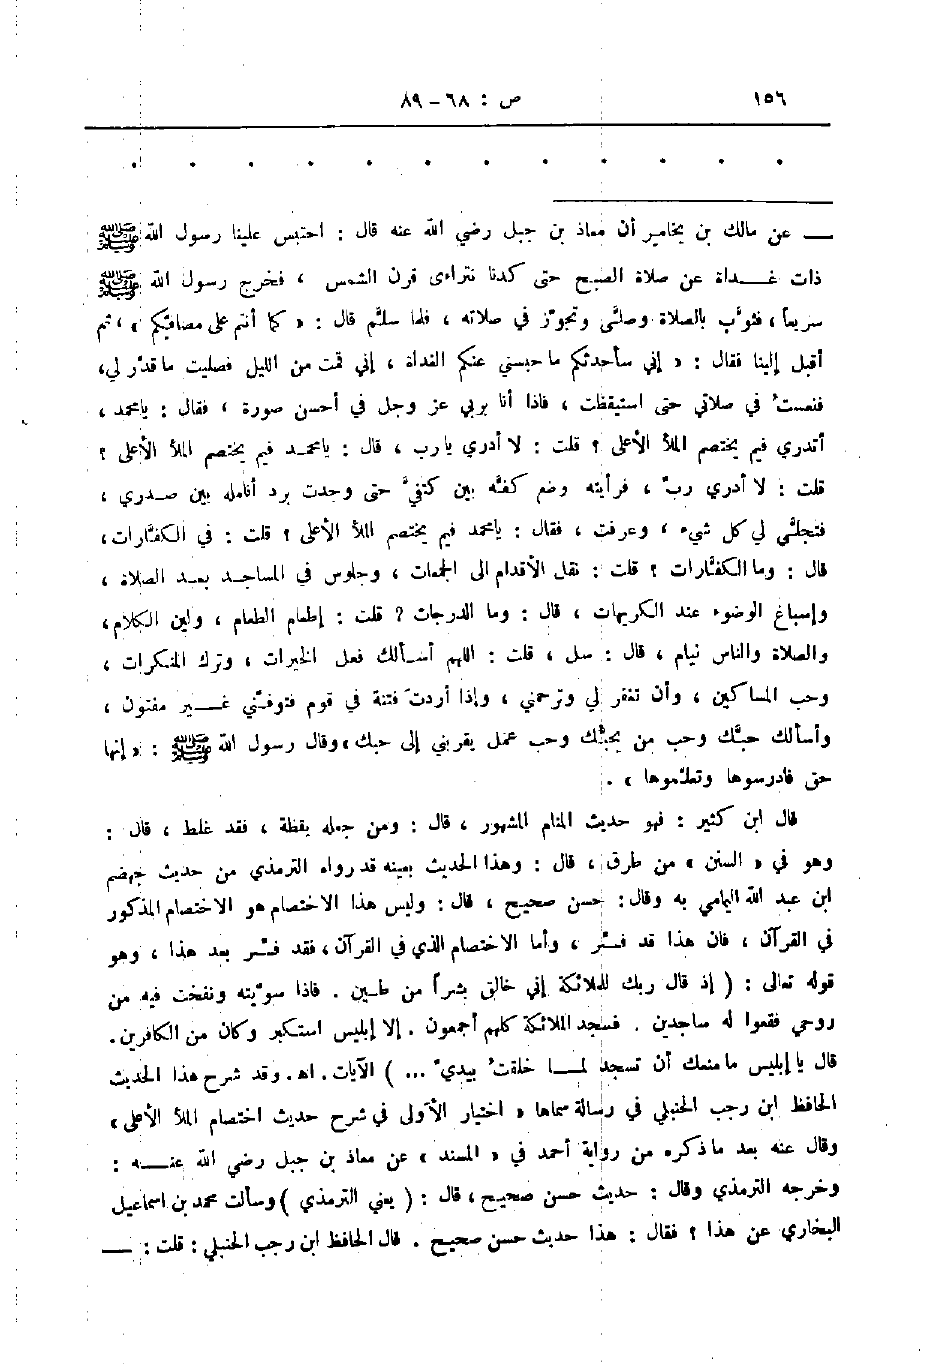 ١٥٦
ص : ٦٨ – ٨٩
. . . . . . . . . . . .
ـــ عن مالك بن يخامر أن معاذ بن جبل رضي الله عنه قال : احتبس علينا رسول الله ﷺ
ذات غـــداة عن صلاة الصبح حتى كدنا نتراءى قرن الشمس ، فخرج رسول الله ﷺ
سريعاً ، فثوَّب بالصلاة وصلَّى وتجوَّز في صلاته ، فلما سلَّم قال : « كما أنتم على مصافِّكم » ، ثم
أقبل إلينا فقال : « إني سأحدثكم ما حبسني عنكم الغداة ، إني قمت من الليل فصليت ما قدّر لي،
فنعستُ في صلاتي حتى استيقظت ، فاذا أنا بربي عز وجل في أحسن صورة ، فقال : يا محمد ،
أتدري فيم يختصم الملأ الأعلى ؟ قلت : لا أدري يا رب ، قال : يا محمـد فيم يختصم الملأ الأعلى ؟
قلت : لا أدري ربّ ، فرأيته وضع كفَّه بين كتفيَّ حتى وجدت برد أنامله بين صـدري ،
فتجلَّى لي كل شيء ، وعرفت ، فقال : يا محمد فيم يختصم الملأ الأعلى ؟ قلت : في الكفَّارات،
قال : وما الكفَّارات ؟ قلت : نقل الأقدام الى الجمعات ، وجلوس في المساجـد بعـد الصلاة ،
وإسباغ الوضوء عند الكريهات ، قال : وما الدرجات ? قلت : إطعام الطعام ، ولين الكلام،
والصلاة والناس نيام ، قال : سل ، قلت : اللهم أسـألك فعل الخيرات ، وترك المنكرات ،
وحب المساكين ، وأن تغفر لي وترحمني ، وإذا أردتَ فتنة في قوم فتوفَّني غـــير مفتون ،
وأسألك حبَّك وحب من يحبُّك وحب عمل يقربني إلى حبك » وقال رسول الله ﷺ : « إنها
حق فادرسوها وتعلَّموها » .
قال ابن كثير : فهو حديث المنام المشهور ، قال : ومن جعله يقظة ، فقد غلط ، قال :
وهو في « السنن » من طرق ، قال : وهذا الحديث بعينه قد رواه الترمذي من حديث جهضم
ابن عبد الله اليمامي به وقال: حسن صحيح ، قال : وليس هذا الاختصام هو الاختصام المذكور
في القرآن ، فان هذا قد فسِّر ، وأما الاختصام الذي في القرآن ، فقد فسِّر بعد هذا ، وهو
قوله تعالى : ( إذ قال ربك للملائكة إني خالق بشراً من طـين . فاذا سوَّيته ونفخت فيه من
روحي فقعوا له ساجدين . فسجد الملائكة كلهم أجمعون . إلا إبليس استكبر وكان من الكافرين .
قال يا إبليس ما منعك أن تسجد لمـــا خلقتُ بيديّ ... ) الآيات . اهـ . وقد شرح هذا الحديث
الحافظ ابن رجب الحنبلي في رسالة سماها « اختيار الأولى في شرح حديث اختصام الملأ الأعلى »
وقال عنه بعد ما ذكره من رواية أحمد في « المسند » عن معاذ بن جبل رضي الله عنـــه :
وخرجه الترمذي وقال : حديث حسن صحيح ، قال : ( يعني الترمذي ) وسألت محمد بن اسماعيل
البخاري عن هذا ؟ فقال : هذا حديث حسن صحيح . قال الحافظ ابن رجب الحنبلي : قلت : ـــ